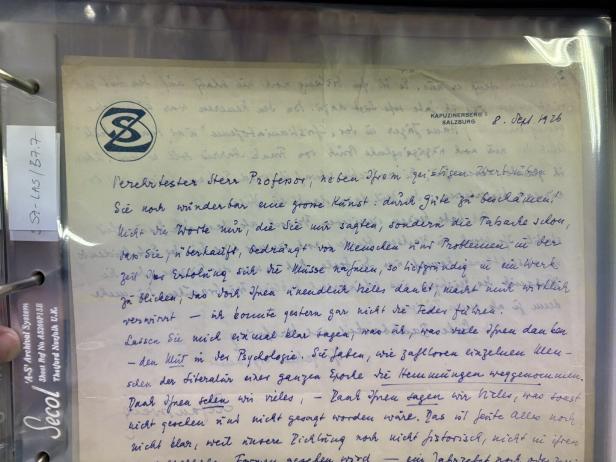 SZ
KAPUZINERBERG 5
SALZBURG
8. Sept 1926
S.Fr-LAS/B7.7
Verehrtester Herr Professor, neben Ihrem geistigen Werk üben
Sie noch wunderbar eine grosse Kunst: durch Güte zu beschämen!
Nicht die Worte nur, die Sie mir sagten, sondern die Tatsache schon,
dass Sie, überhäuft, bedrängt von Menschen und Problemen in der
Zeit der Erholung sich die Musse nahmen, so tiefgründig in ein Werk
zu blicken, das doch Ihnen unendlich vieles dankt, macht mich wirklich
verwirrt – ich konnte gestern gar nicht die Feder führen.
Lassen Sie mich einmal klar sagen, was ich, was viele Ihnen danken
– den Mut in der Psychologie. Sie haben, wie zahllosen einzelnen Men-
schen der Literatur einer ganzen Epoche die Hemmungen weggenommen.
Dank Ihnen sehen wir vieles, – Dank Ihnen sagen wir Vieles, was sonst
nicht gesehen und nicht gesagt worden wäre. Das ist heute Alles noch
nicht klar, weil unsere Dichtung noch nicht historisch, nicht in ihren
Formen gesehen wird – ein Jahrzehnt noch oder zwei
'A-S' Archival System
Sheet Ref No
Thetford Norfolk U.K.
Secol